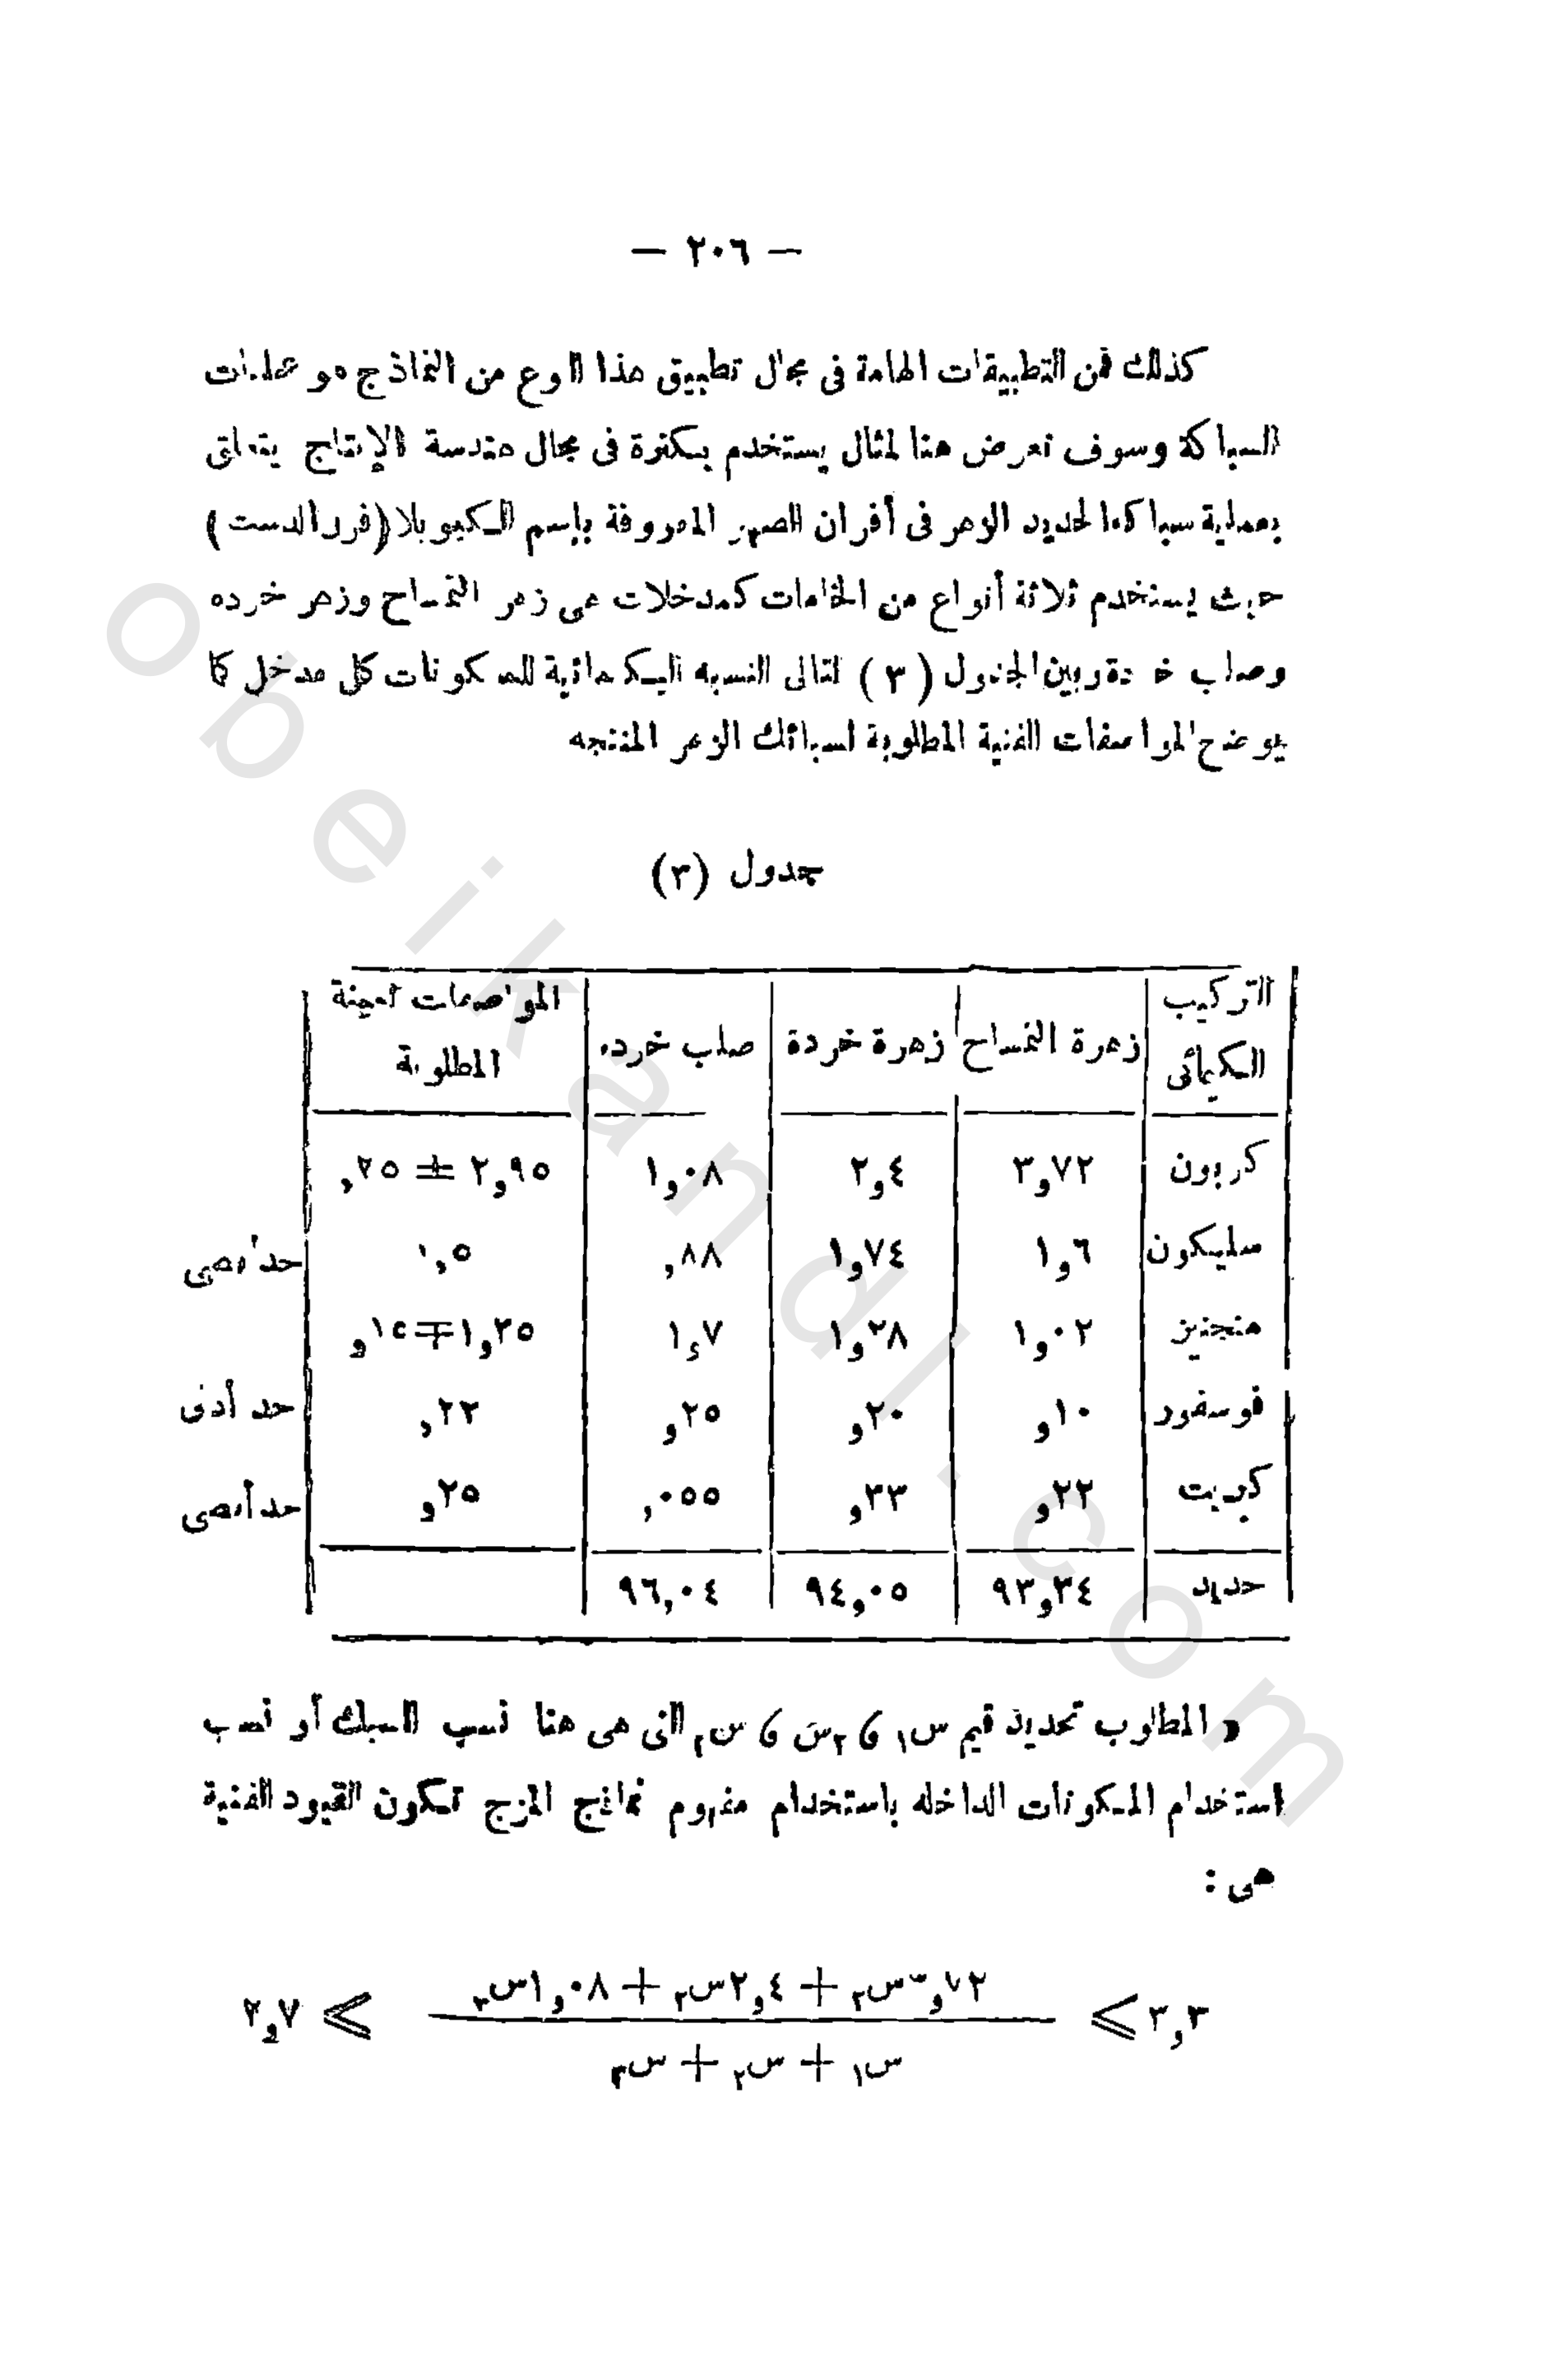 — ٢٠٦ —
كذلك فمن التطبيقات الهامة فى مجال تطبيق هذا النوع من النماذج هو عمليات
السباكة وسوف نعرض هنا لمثال يستخدم بكثرة فى مجال هندسة الإنتاج يتعلق
بعملية سباكة الحديد الزهر فى أفران الصهر المعروفة بإسم الكيوبلا (فرن الدست)
حيث يستخدم ثلاثة أنواع من الخامات كمدخلات هى زهر التمساح وزهر خرده
وصلب خردة ويبين الجدول (٣) التالى النسبه الكيمائية للمكونات كل مدخل كما
يوضح المواصفات الفنية المطلوبة لسبائك الزهر المنتجه
جدول (٣)
التركيب الكيمائى | زهرة التمساح | زهرة خردة | صلب خرده | المواصفات المطلوبة
كربون | ٣,٧٢ | ٢,٤ | ١,٠٨ | ٢,٩٥ ± ,٢٥
سليكون | ١,٦ | ١,٧٤ | ,٨٨ | ١,٥ حد أقصى
منجنيز | ١,٠٢ | ١,٢٨ | ١,٧ | ١,٢٥ ∓ ,١٥
فوسفور | ,١٠ | ,٢٠ | ,٢٥ | ,٢٢ حد أدنى
كبريت | ,٢٢ | ,٣٣ | ,٠٥٥ | ,٢٥ حد أقصى
حديد | ٩٣,٣٤ | ٩٤,٠٥ | ٩٦,٠٤
و المطلوب تحديد قيم س١ ، س٢ ، س٣ التى هى هنا نسب السبك أو نسب
استخدام المكونات الداخله باستخدام مفهوم نماذج المزج تكون القيود الفنية
هى :
٣,٣ ≥ ٣,٧٢س٢ + ٢,٤س٢ + ١,٠٨س٣ ≥ ٢,٧
س١ + س٢ + س٣
obeikandl.com